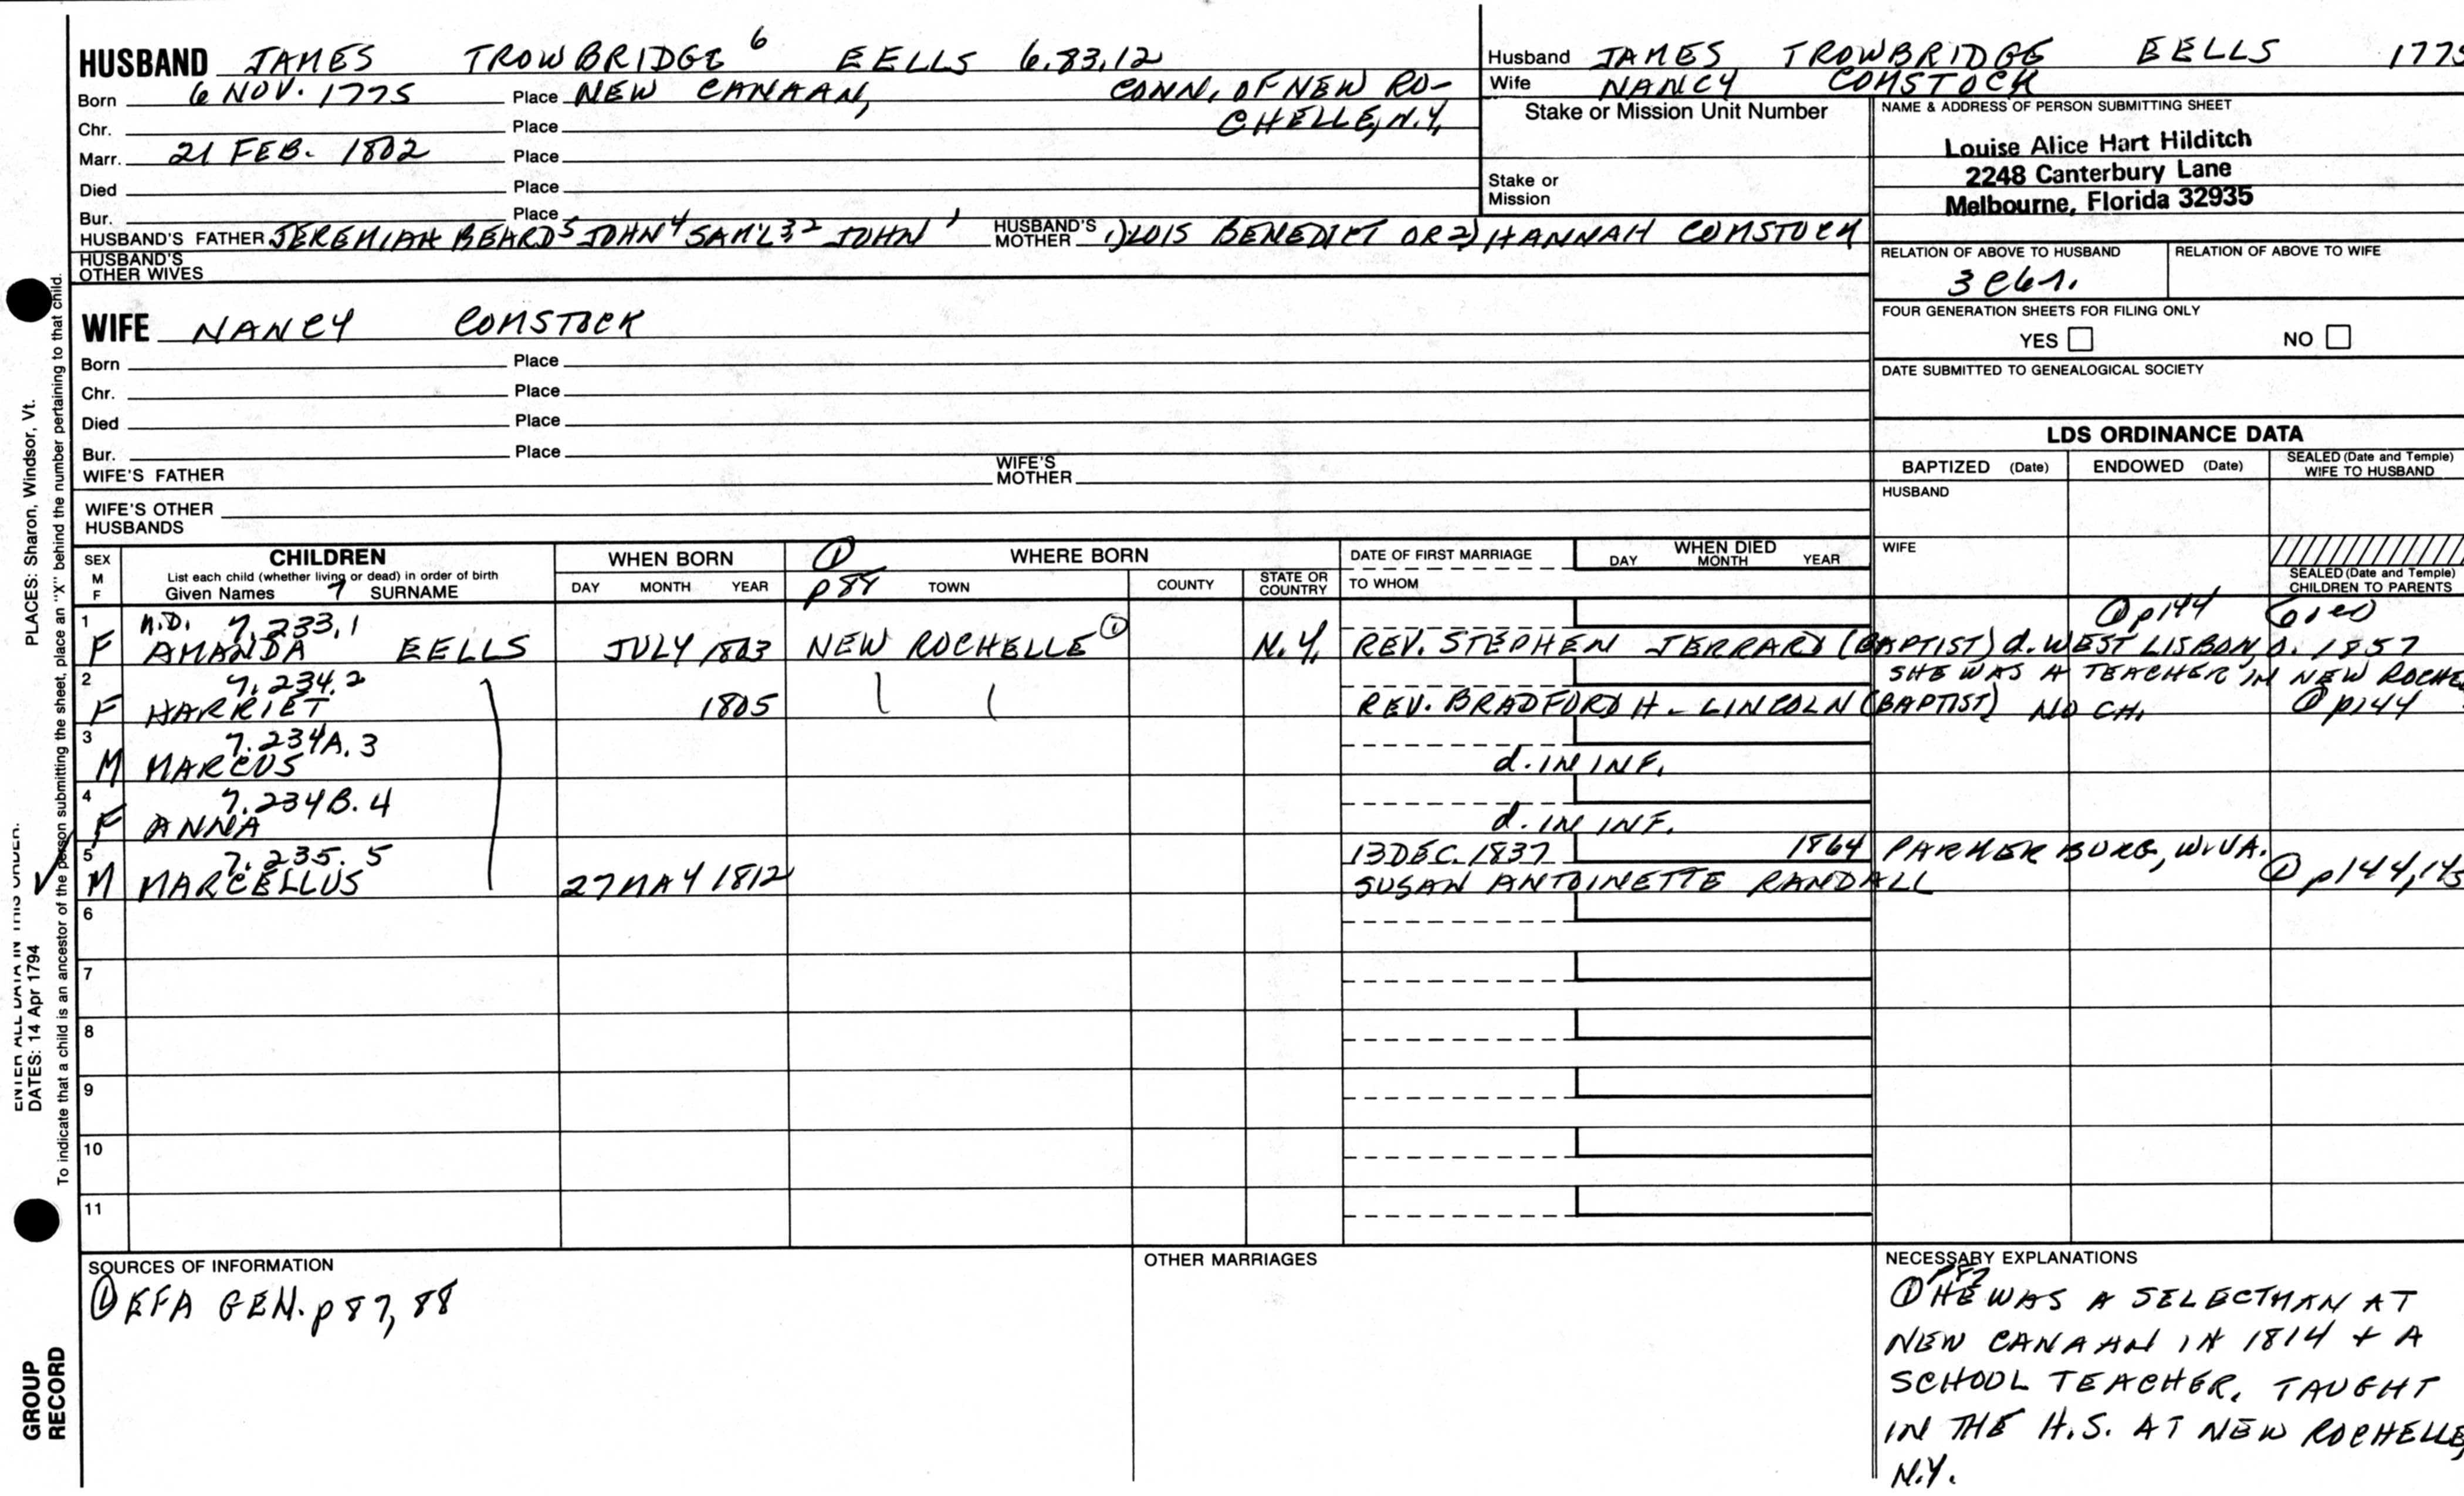 HUSBAND JAMES TROWBRIDGE 6 EELLS 6.83.12
Born 6 NOV. 1775 Place NEW CANAAN, CONN. OF NEW RO-
Chr. Place CHELLE, N.Y.
Marr. 21 FEB. 1802 Place
Died Place
Bur. Place
HUSBAND'S FATHER JEREMIAH BEARD5 JOHN4 SAM'L3 2 JOHN 1 HUSBAND'S MOTHER 1) LOIS BENEDICT OR 2) HANNAH COMSTOCK
HUSBAND'S OTHER WIVES
Husband JAMES TROWBRIDGE EELLS 1775
Wife NANCY COMSTOCK
Stake or Mission Unit Number
Stake or Mission
NAME & ADDRESS OF PERSON SUBMITTING SHEET
Louise Alice Hart Hilditch
2248 Canterbury Lane
Melbourne, Florida 32935
RELATION OF ABOVE TO HUSBAND RELATION OF ABOVE TO WIFE
FOUR GENERATION SHEETS FOR FILING ONLY
YES NO
DATE SUBMITTED TO GENEALOGICAL SOCIETY
WIFE NANCY COMSTOCK
Born Place
Chr. Place
Died Place
Bur. Place
WIFE'S FATHER WIFE'S MOTHER
WIFE'S OTHER HUSBANDS
LDS ORDINANCE DATA
BAPTIZED (Date) ENDOWED (Date) SEALED (Date and Temple) WIFE TO HUSBAND
HUSBAND
WIFE
SEALED (Date and Temple) CHILDREN TO PARENTS
SEX M F
CHILDREN
List each child (whether living or dead) in order of birth
Given Names 7 SURNAME
WHEN BORN
DAY MONTH YEAR
① p88
WHERE BORN
TOWN COUNTY STATE OR COUNTRY
DATE OF FIRST MARRIAGE
TO WHOM
WHEN DIED
DAY MONTH YEAR
1 N.D. 7.233.1 ① p144
F AMANDA EELLS JULY 1803 NEW ROCHELLE ① N.Y. REV. STEPHEN JERRARD (BAPTIST) d. WEST LISBON, O. 1857
2 7.234.2 SHE WAS A TEACHER IN NEW ROCHE
F HARRIET 1805 REV. BRADFORD H. LINCOLN (BAPTIST) NO CH. ① p144
3 7.234A.3
M MARCUS d. IN INF.
4 7.234B.4
F ANNA d. IN INF.
5 7.235.5 13 DEC. 1837 1864 PARKER BURG, W.VA.
M MARCELLUS 27 MAY 1812 SUSAN ANTOINETTE RANDALL ① p144, 145
6
7
8
9
10
11
SOURCES OF INFORMATION
① EFA GEN. p 87, 88
OTHER MARRIAGES
NECESSARY EXPLANATIONS
p87
① HE WAS A SELECTMAN AT
NEW CANAAN IN 1814 + A
SCHOOL TEACHER. TAUGHT
IN THE H.S. AT NEW ROCHELLE,
N.Y.
PLACES: Sharon, Windsor, Vt.
ENTER ALL DATA IN THIS ORDER:
DATES: 14 Apr 1794
To indicate that a child is an ancestor of the person submitting the sheet, place an "X" behind the number pertaining to that child.
GROUP
RECORD